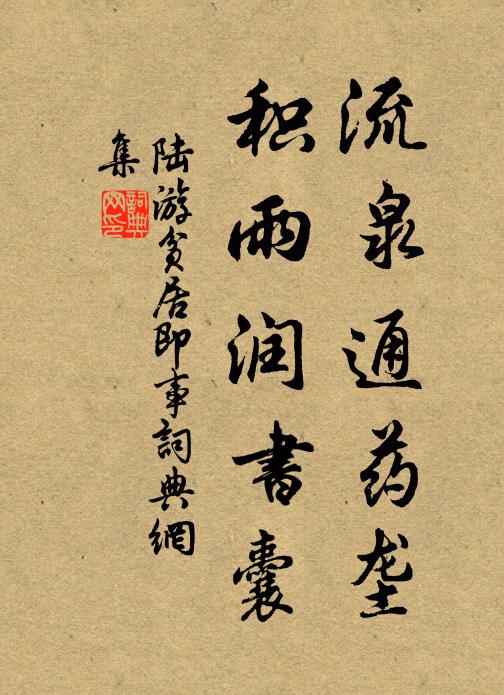 流泉通药垄
积雨润書囊
陆游贫居即事詞典網
集
詞典
网印